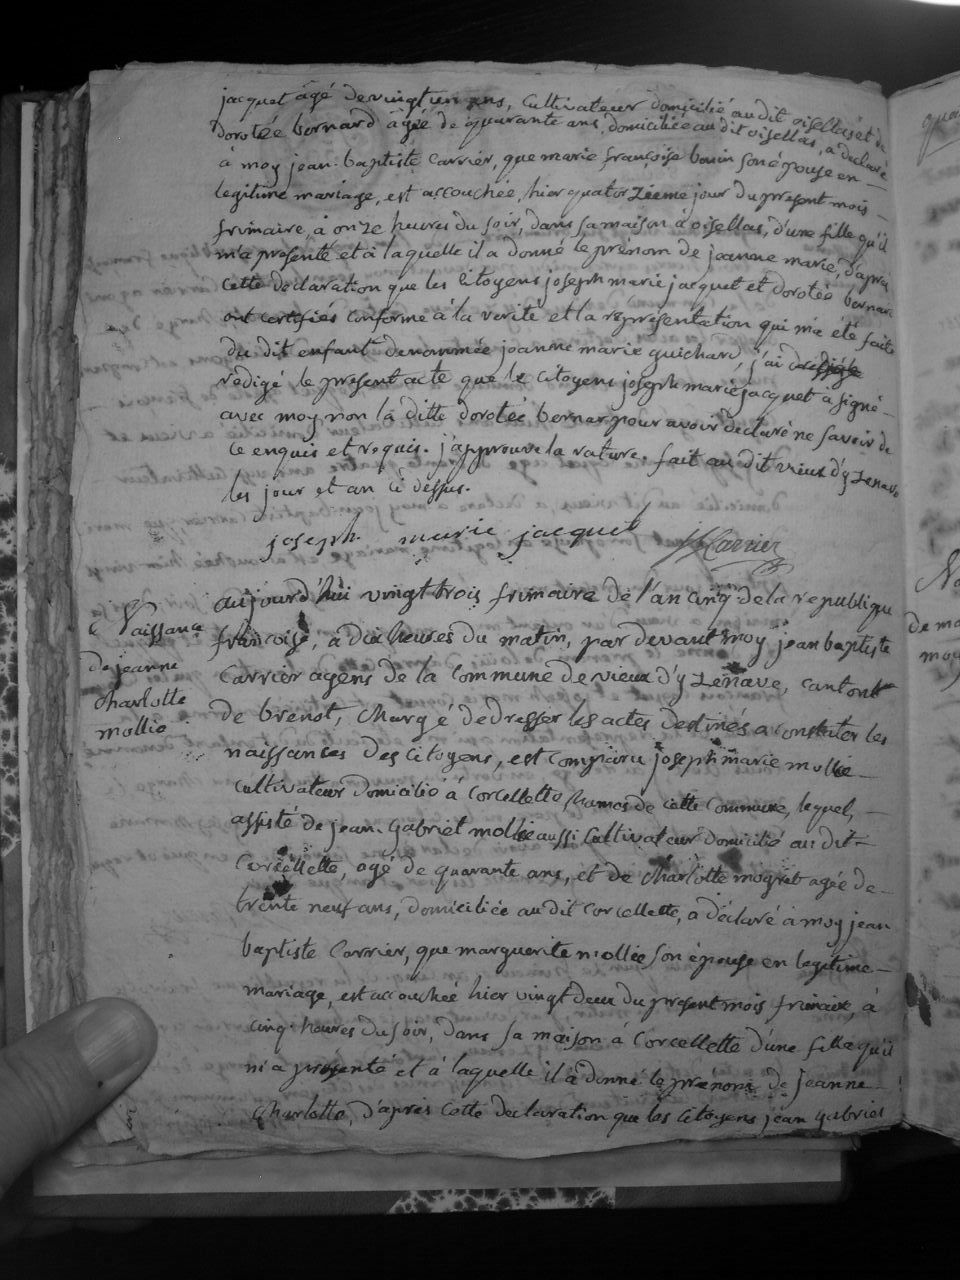 jacquet âgé de vingt un ans, Cultivateur domicilié au dit oisellas et de
dorotée bernard âgée de quarante ans, domiciliée au dit oisellas, a déclaré
à moy jean-baptiste Carrier, que marie françoise bouin son épouse en
legitime mariage, est accouchée, hier quatorzième jour du present mois
frimaire, à onze heures du soir, dans sa maison à oisellas, d'une fille qu'il
m'a presenté et à laquelle il a donné le prénom de jeanne marie, d'après
cette declaration que les Citoyens joseph marie jacquet et dorotée bernard
ont certifiés conforme à la verité et la représentation qui m'a eté faite
du dit enfant denommée jeanne marie guichard, j'ai
redigé le present acte que le Citoyens joseph marie jacquet a signé
avec moy non la ditte dorotée bernar pour avoir declaré ne savoir de
ce enquis et requis. j'approuve la rature. fait au dit vieux d'yzenave
les jour et an ci dessus.
joseph marie jacquet Carrier
Naissance
de jeanne
charlotte
mollie
aujourd'hui vingt trois frimaire de l'an cinq de la republique
françoise, à dix heures du matin, par devant moy jean baptiste
Carrier agens de la Commune de vieux d'yzenave, canton
de brenot, Chargé de dresser les actes destinés a constater les
naissances des Citoyens, est comparu joseph marie mollie
cultivateur domicilié à Corcellette hameau de cette commune, lequel,
assisté de jean-gabriel mollie aussi Cultivateur domicilié au dit
Corcellette, agé de quarante ans, et de Charlotte moyret agée de
trente neuf ans, domiciliée au dit Corcellette, a déclaré à moy jean
baptiste Carrier, que marguerite mollie son épouse en legitime
mariage, est accouchée hier vingt deux du present mois frimaire, à
cinq heures du soir, dans sa maison à Corcellette d'une fille qu'il
m'a presenté et à laquelle il a donné le prénom de jeanne
Charlotte, d'après cette declaration que les Citoyens jean gabriel